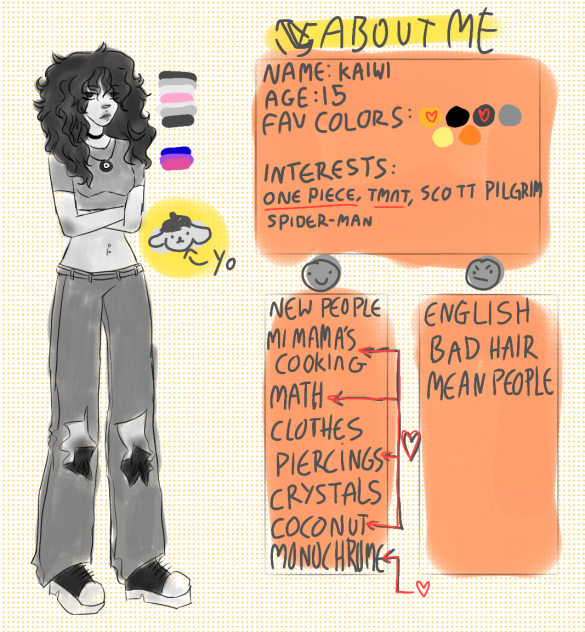 ABOUT ME
NAME: KAIWI
AGE: 15
FAV COLORS:
INTERESTS:
ONE PIECE, TMNT, SCOTT PILGRIM
SPIDER-MAN
YO
NEW PEOPLE
MI MAMA'S
COOKING
MATH
CLOTHES
PIERCINGS
CRYSTALS
COCONUT
MONOCHROME
ENGLISH
BAD HAIR
MEAN PEOPLE